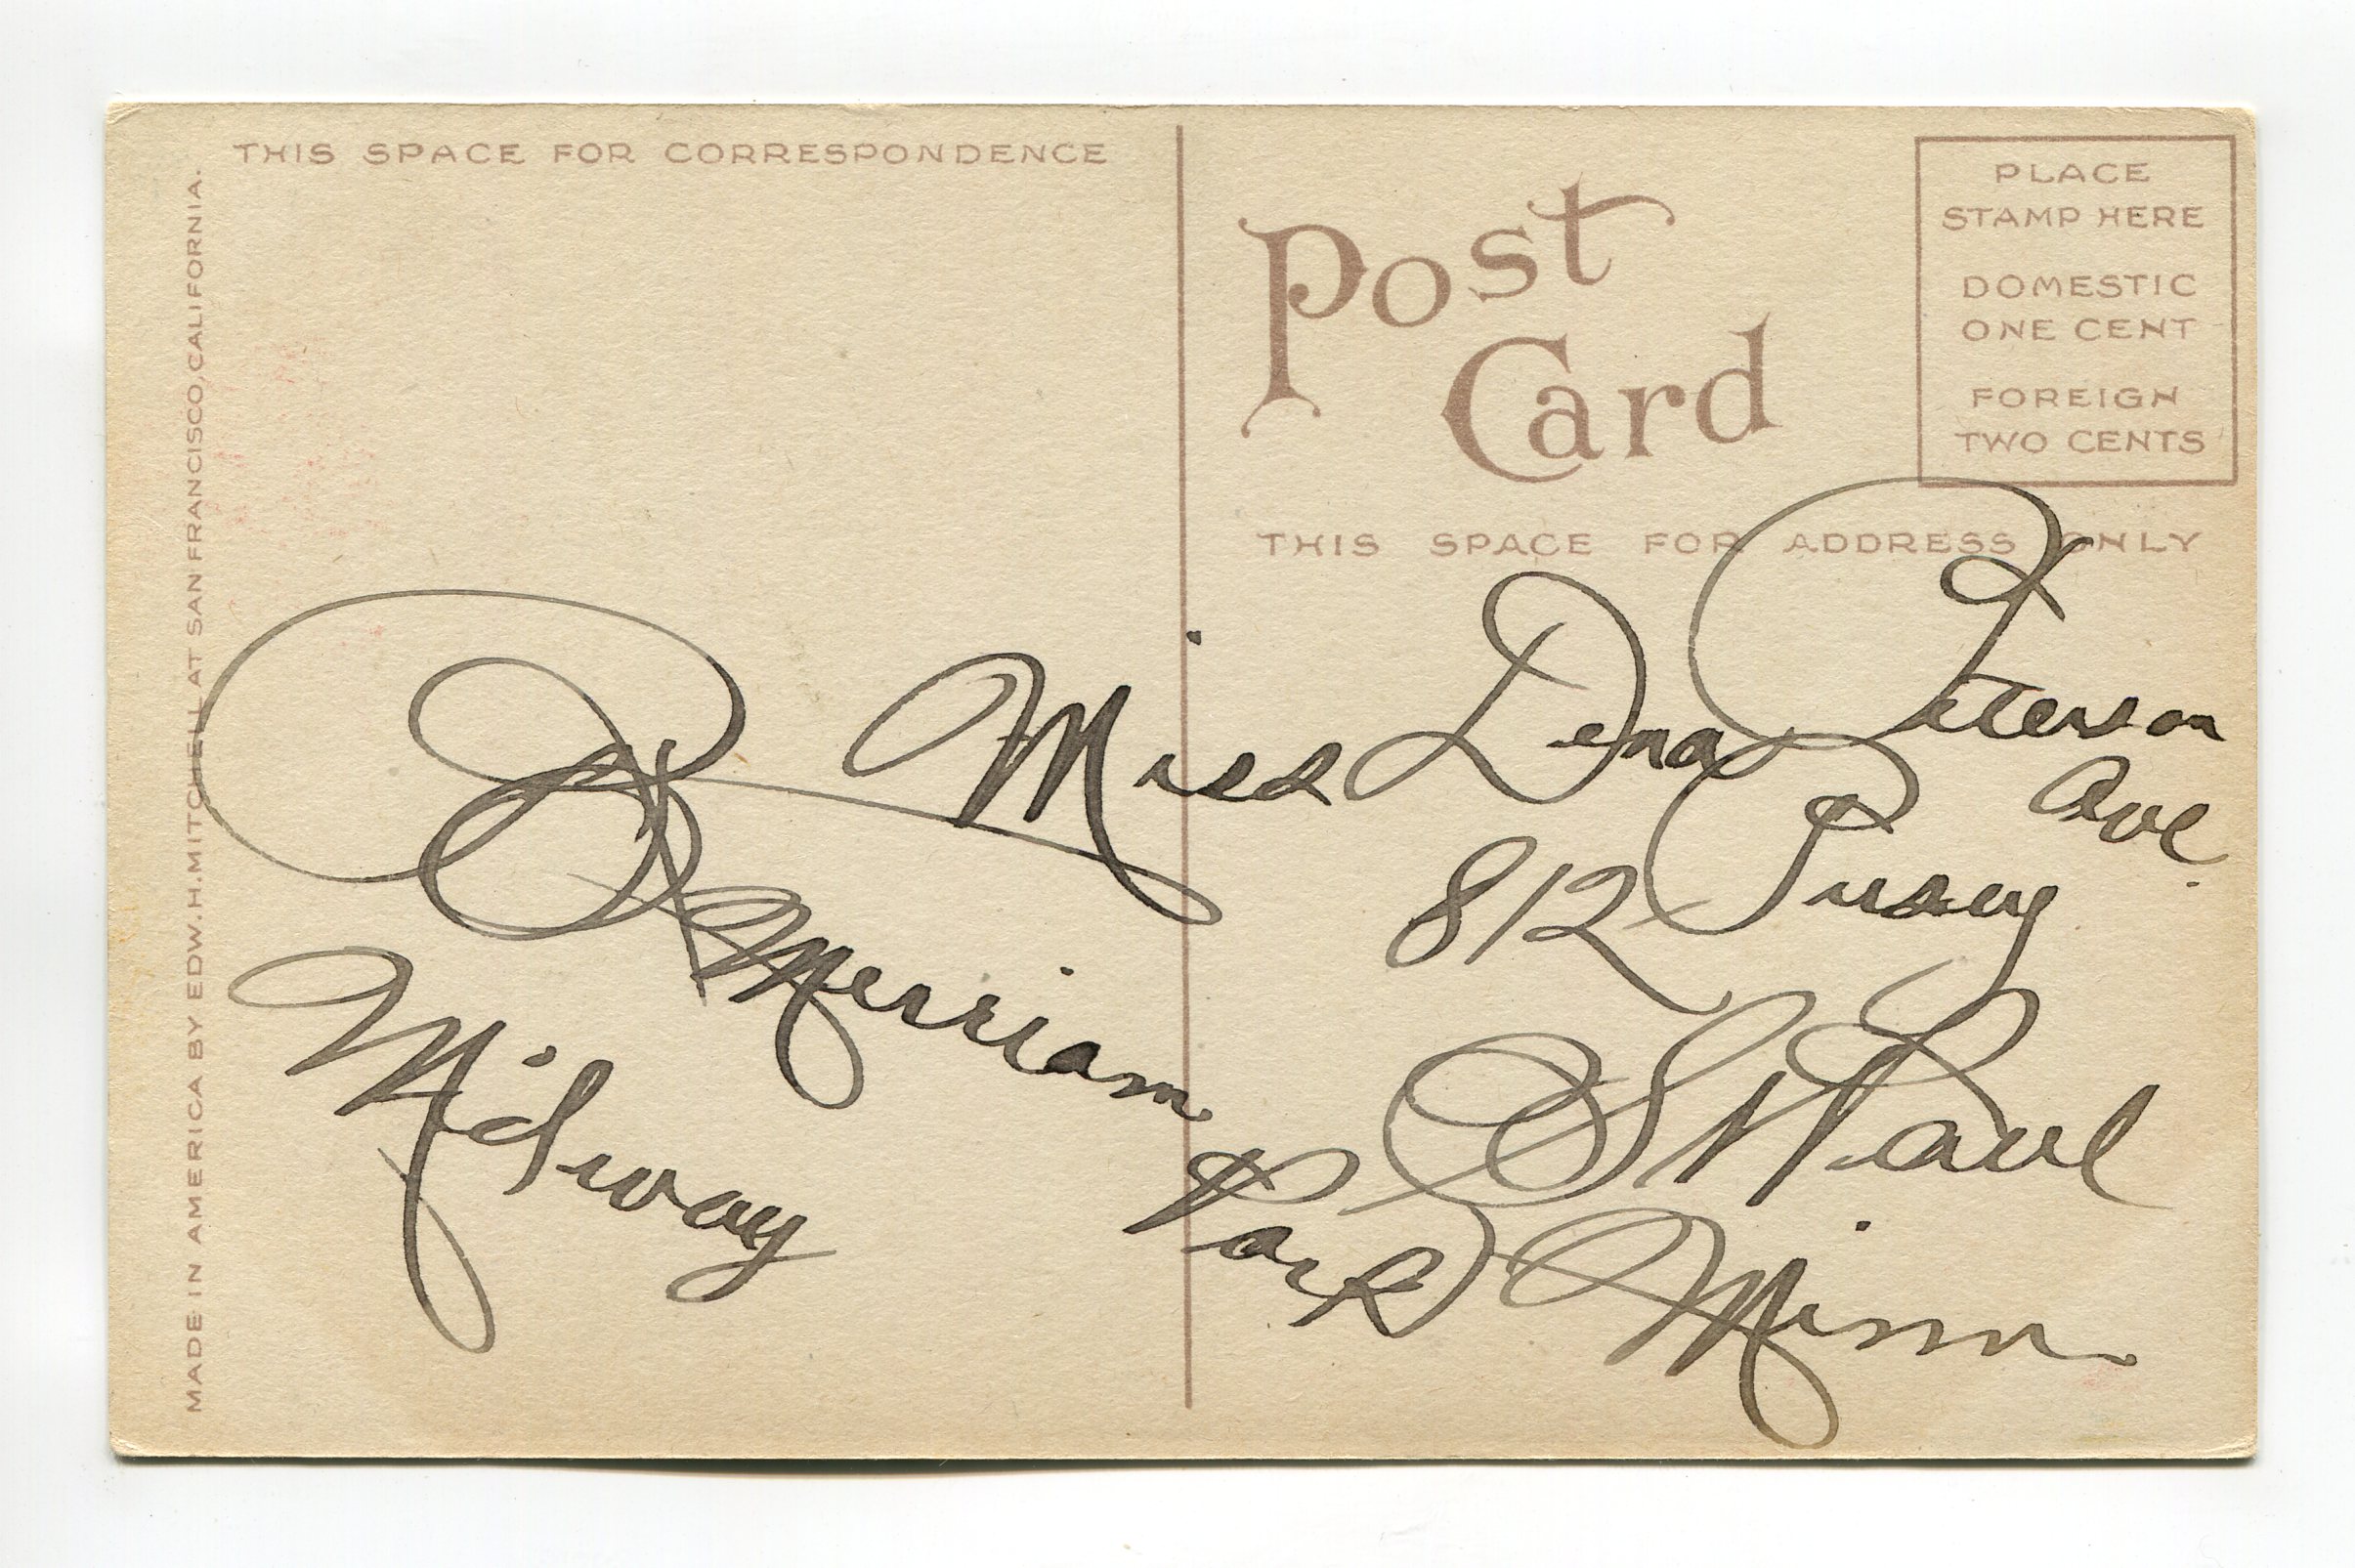 THIS SPACE FOR CORRESPONDENCE
MADE IN AMERICA BY EDW. H. MITCHELL AT SAN FRANCISCO, CALIFORNIA.
Post
Card
PLACE
STAMP HERE
DOMESTIC
ONE CENT
FOREIGN
TWO CENTS
THIS SPACE FOR ADDRESS ONLY
Miss Dena Peterson
812 Pusey Ave.
St Paul
Minn
Merriam Park
Midway